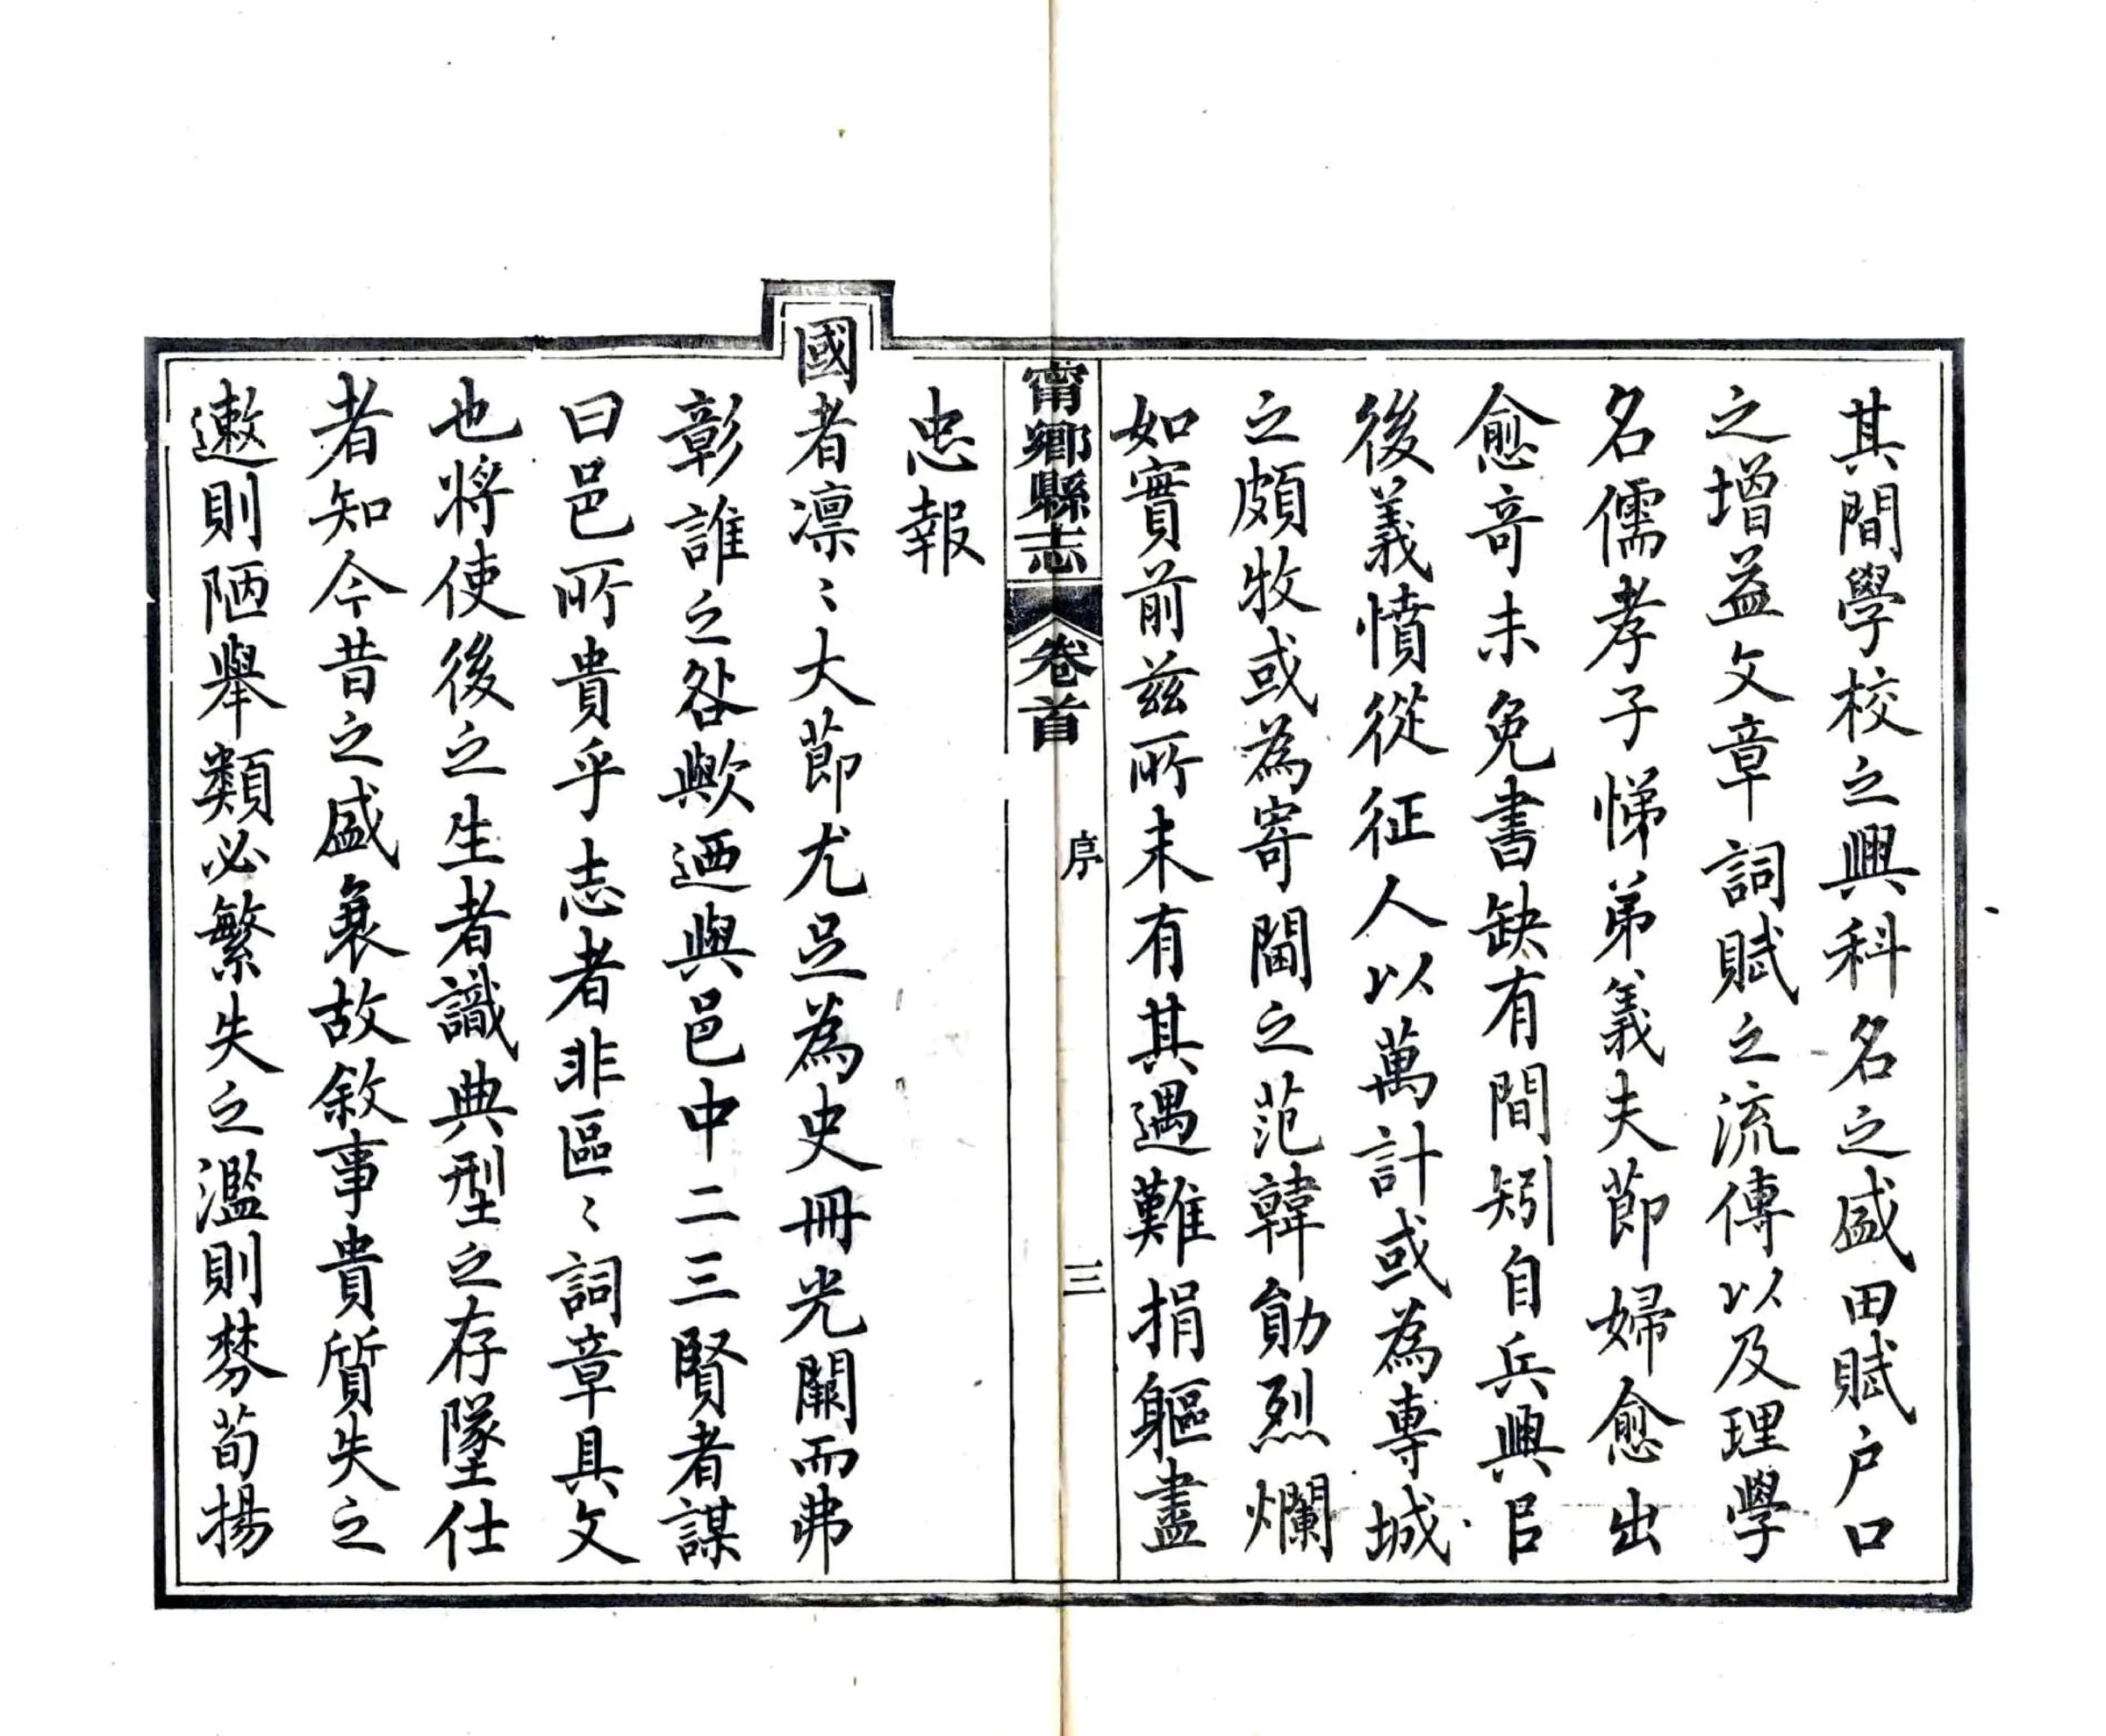 其間學校之興科名之盛田賦户口
之增益文章詞賦之流傳以及理學
名儒孝子悌弟義夫節婦愈出
愈奇未免書缺有間矧自兵興㠯
後義憤從征人以萬計或為專城
之頗牧或為寄閫之范韓勛烈爛
如實前兹所未有其遇難捐軀盡
甯鄉縣志
卷首
序
三
忠報
國者凛〻大節尤足為史冊光闕而弗
彰誰之咎歟迺與邑中二三賢者謀
曰邑所貴乎志者非區〻詞章具文
也將使後之生者識典型之存墜仕
者知今昔之盛衰故敘事貴質失之
遬則陋舉類必繁失之濫則棼苟揚